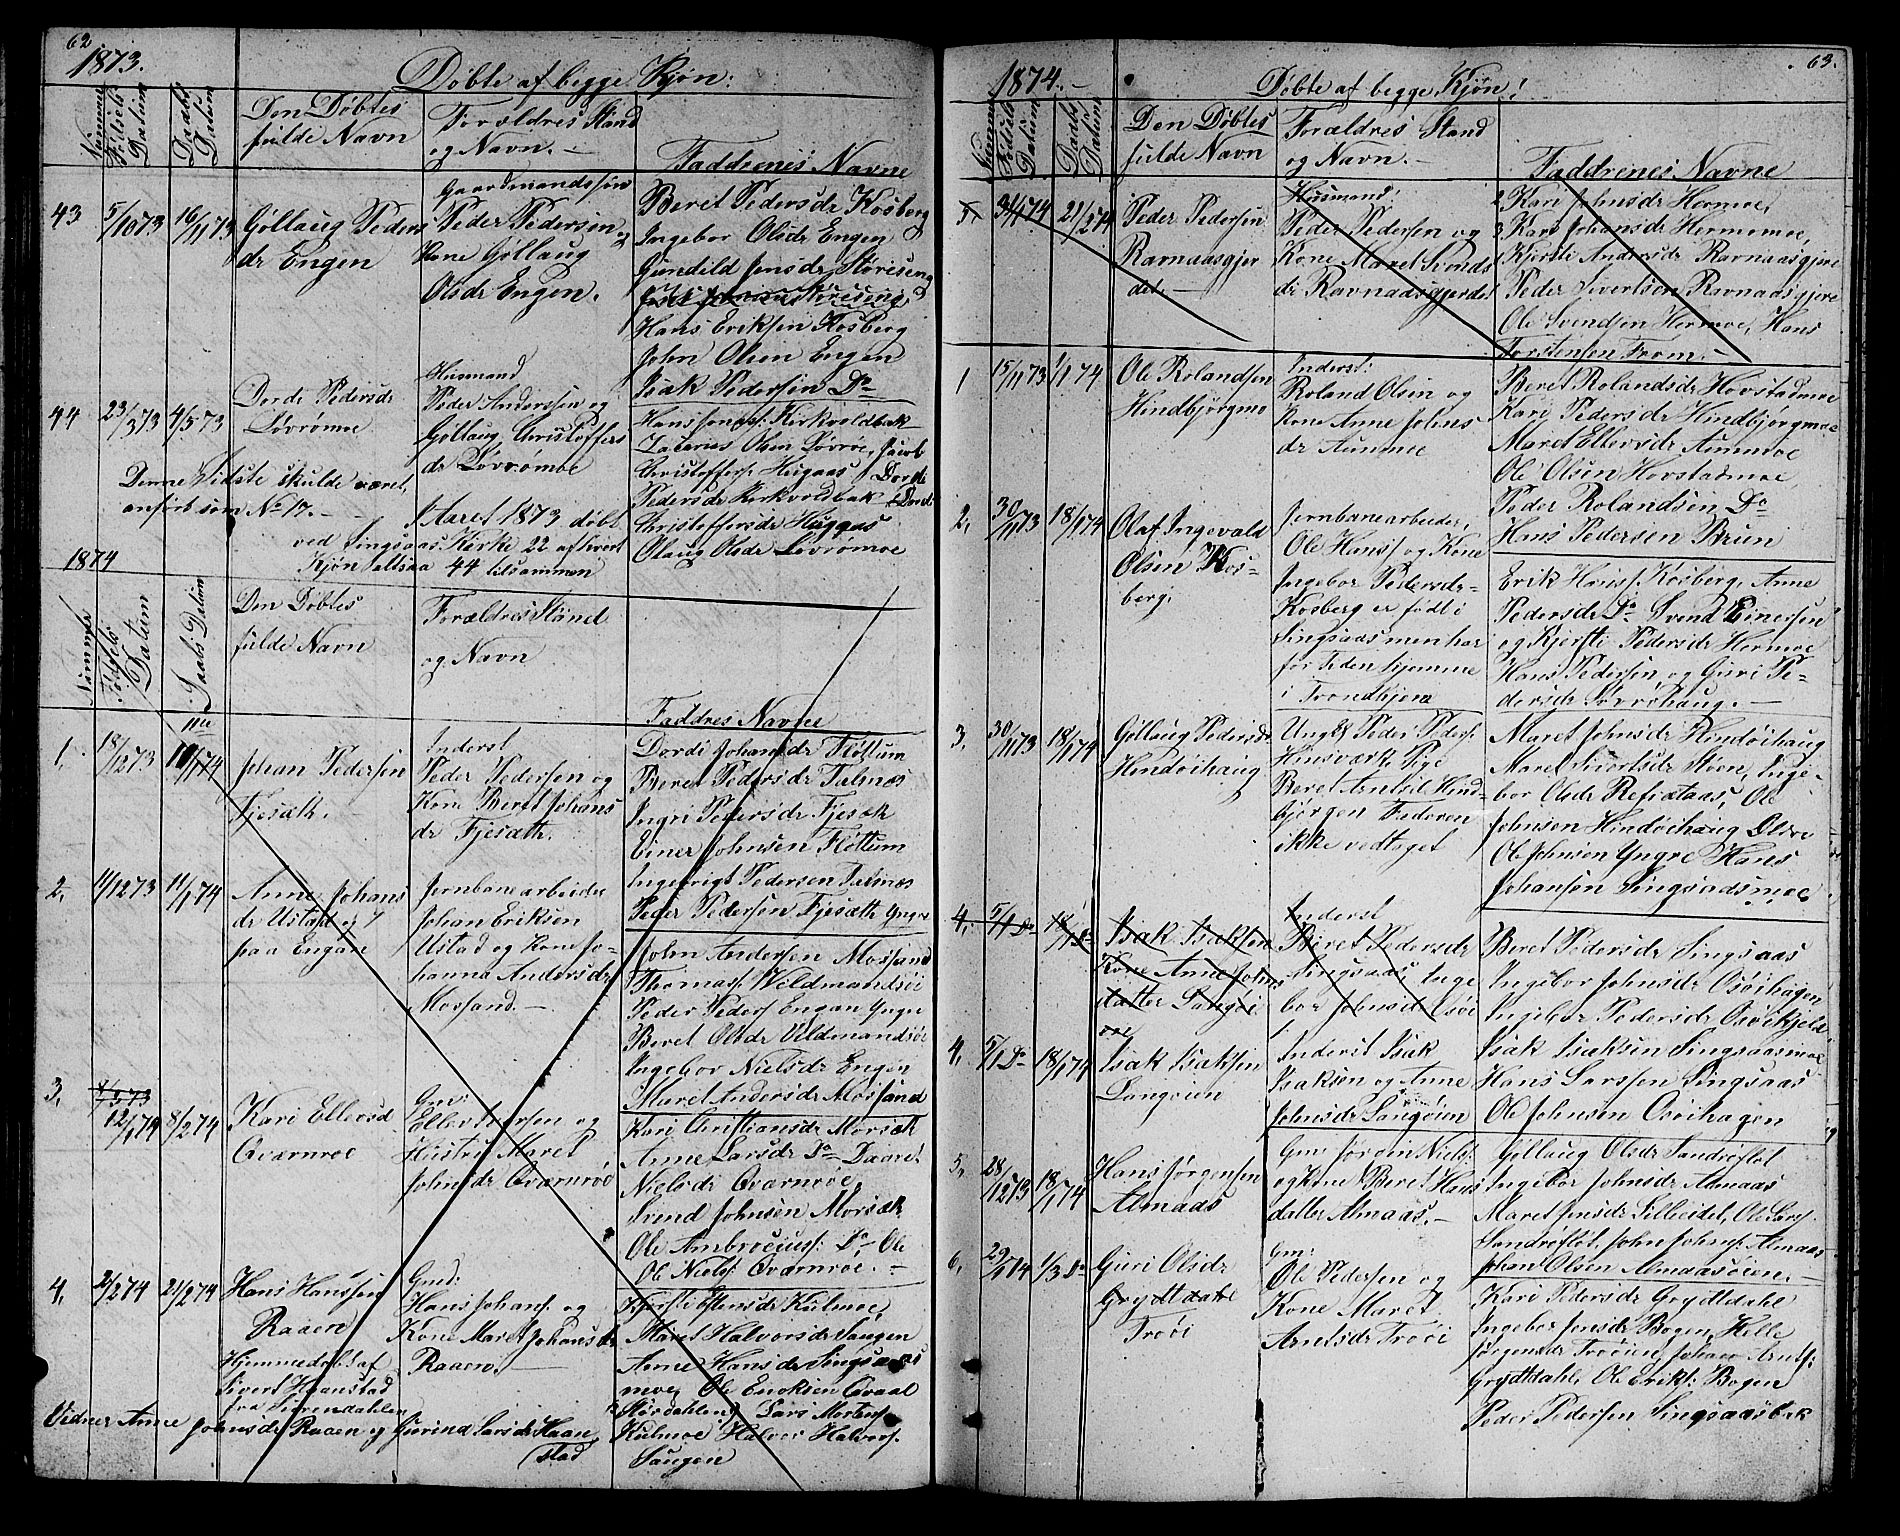 62
1873.
Døbte af begge Kjøn:
Nummer
Fødsels Datum
Daabs Datum
Den Døbtes
fulde Navn
Forældres Stand
og Navn. —
Faddrenes Navne
43
5/10 73
16/11 73
Göllaug Peders
dr Engen
Gaardmandssøn
Peder Pedersen
Kone Göllaug
Olsdr Engen.
Beret Pedersdr Kosberg
Ingebor Olsdr Engen
Gunild Jensdr Störiseng
Hans Eriksen Kosberg
John Olsen Engen
Isak Pedersen Do
44
23/3 73
4/5 73
Dorde Pedersdr
Lövrömoe
Husmand
Peder Anderssen og
Göllaug Christoffers
dr Lövrömoe
Hans Jonas: Kirkvoldbak
Zacarias Olsen Lövröe, Jacob
Christoffers: Hegaas Dorde
Pedersdr Kirkvoldbak
Christoffersdr Heggas
Olaug Olsdr Lövrömoe
Denne Sidste skulde været
anført som No 17. —
I Aaret 1873 døbt
ved Singsaas Kirke 22 af hvert
Kjøn altsaa 44 tilsammen
1874
Nummer
Fødsels Datum
Daabs Datum
Den Döbtes
fulde Navn
Forældres Stand
og Navn
Faddres Navne
1.
18/12 73
1/1 74
Johan Pedersen
Fjesæth.
Inderst
Peder Pedersen og
Kone Beret Johans
dr Fjesæth.
Dordi Johansdr Flöttum
Beret Pedersdr Talmoes
Ingri Pedersdr Fjesæth
Einer Johnsen Flöttum
Ingebrigt Pedersen Talmoes
Peder Pedersen Fjesæth Yngre
2,
11/12 73
11/1 74
Anne Johans
dr Ustad og
paa Engan
Jernbanearbeider
Johan Eriksen
Ustad og Kone Jo-
hanna Andersdr
Mossand. —
John Andersen Mossand
Thomas: Veldmandsöi
Peder Peders Engan Yngre
Beret Olsdr Veldmandsöi
Ingebor Nielsdr Engen
Maret Andersdr Mossand
3,
12/1 74
8/2 74
Kari Ellevsd
Qværnröe
Gm:
Ellev Iversen og
Hustru Maret
Johnsdr Qværnröe
Kari Christiansdr Morsæth
Anne Larsdr Do Daaret
Nielsdr Qværnröe,
Svend Johnsen Morsæth
Ole Ambrociuss: Do, Ole
Ole Niels: Qværnröe. —
4,
2/2 74
21/2 74
Hans Hanssen
Raaen
Hjemmedøbt af
Sivert Haanstad
fra Surendahlen
Gmd:
Hans Johans: og
Kone Maret Johansdr
Raaen. —
Kjersti Estensdr Kulmoe,
Maret Halvorsdr Saugen
Anne Hansdr Singsaas
moe, Ole Ericksen Qvaal
Stördahlen, Lars Mortens:
Kulmoe Halvor Halvors:
Saugen
Vidner Anne Johnsdr Raaen og Gurind Larsdr Haan
stad
63.
1874. —
Døbte af begge Kjøn!
Nummer
Fødsels Datum
Daabs Datum
Den Døbtes
fulde Navn
Forældres Stand
og Navn. —
Faddrenes Navne
5.
31/1 74
21/2 74
Peder Pedersen
Ravnaasgjer
det. —
Husmand:
Peder Pedersen og
Kone Maret Svends
dr Ravnaasgjerdet
Kari Johnsdr Hermoe,
Kari Johansdr Hermemoe,
Kjersti Andersdr Ravnaasgjere
Peder Sivertsen Ravnaasgjere
Ole Svendsen Hermoe, Hans
Torstensen From. —
1
15/11 73
1/1 74
Ole Rolandsen
Hindbjörgmo
Inderst:
Roland Olsen og
Kone Anne Johns
dr Aunmoe
Beret Rolandsdr Hovstadmoe
Kari Pedersdr Hindbjörgmoe
Maret Ellevsdr Aunmoe
Ole Olsen Hovstadmoe
Peder Rolandsen Do
Hans Pedersen Brun
2,
30/11 73
18/1 74
Olaf Ingevald
Olsen Kos-
berg.
Jernbanearbeider,
Ole Hans: og Kone
Ingebor Pedersdr
Kosberg er født i
Singsaas men har
for Tiden hjemme
i Trondhjem
Erik Hans: Kosberg, Anne
Pedersdr Do Svend Einersen
og Kjersti Pedersdr Hermoe
Hans Pedersen, og Guri Pe-
dersdr Lövröhaug. —
3,
30/11 73
18/1 74
Göllaug Pedersdr
Hindöihaug
Ungk Peder Peders:
Hinsværk, Pige
Beret Arntsd Hind-
bjørgen Faderen
ikke vedtaget
Maret Johnsdr Hindöihaug
Maret Sivertsdr Støen, Inge-
bor Olsdr Refsetaas, Ole
Johnsen Hindöihaug
Ole Johnsen Yngre Hans
Johansen Singsaasmoe
4,
5/1 Do
18/1 Do
Isak Isaksen
Kone Anne Johns
datter Langöi
Inderst
Beret Pedersdr
Singsaas, Inge
bor Johnsdr Osöi
Beret Pedersdr Singsaas
Ingebor Johnsdr Osöihagen
Ingebor Pedersdr Osöikjeld
4,
5/1 Do
18/1 74
Isak Isaksen
Langöien
Inderst Isak
Isaksen og Anne
Johnsdr Langöien
Isak Isaksen Singsaasmoe
Hans Larssen Singsaas
Ole Johnsen Osöihagen
5,
28/12 73
18/1 74
Hans Jørgensen
Almaas
Gm: Jørgen Niels:
og Kone Beret Hans
datter Almaas. —
Göllaug Olsdr Sandröflot
Ingebor Johnsdr Almaas
Maret Jensdr Lilleeidet, Ole Lars:
Sandröflot, John Johns: Almaas
Johan Olsen Almaasöien. —
6,
29/1 74
1/3 Do
Guri Olsdr
Grydtdahl
Trööi
Gm:
Ole Pedersen og
Kone Maret
Arntsdr Trööi
Kari Pedersdr Grydtdahl
Ingebor Jensdr Bogen, Helle
Jørgensdr Trööien, Johan Arnts:
Grydtdahl, Ole Eriks: Bogen
Peder Pedersen Singsaasbak